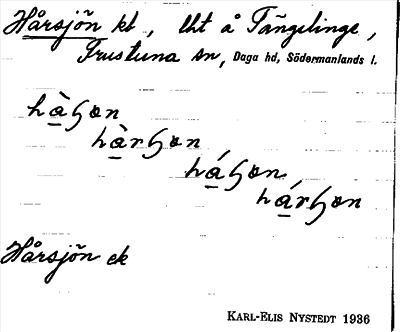 Hårsjön kt, lht å Tängelinge,
Frustuna sn, Daga hd, Södermanlands l.
hàɧon
hàrɧon
háɧon
hárɧon
Hårsjön ek
KARL-ELIS NYSTEDT 1936